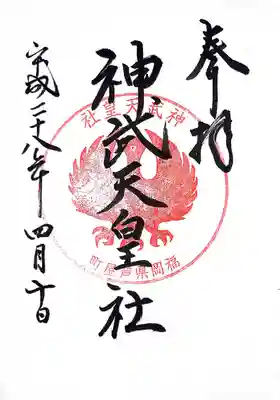 奉拝
神武天皇社
神武天皇社
福岡県芦屋町
平成二十八年 四月十日